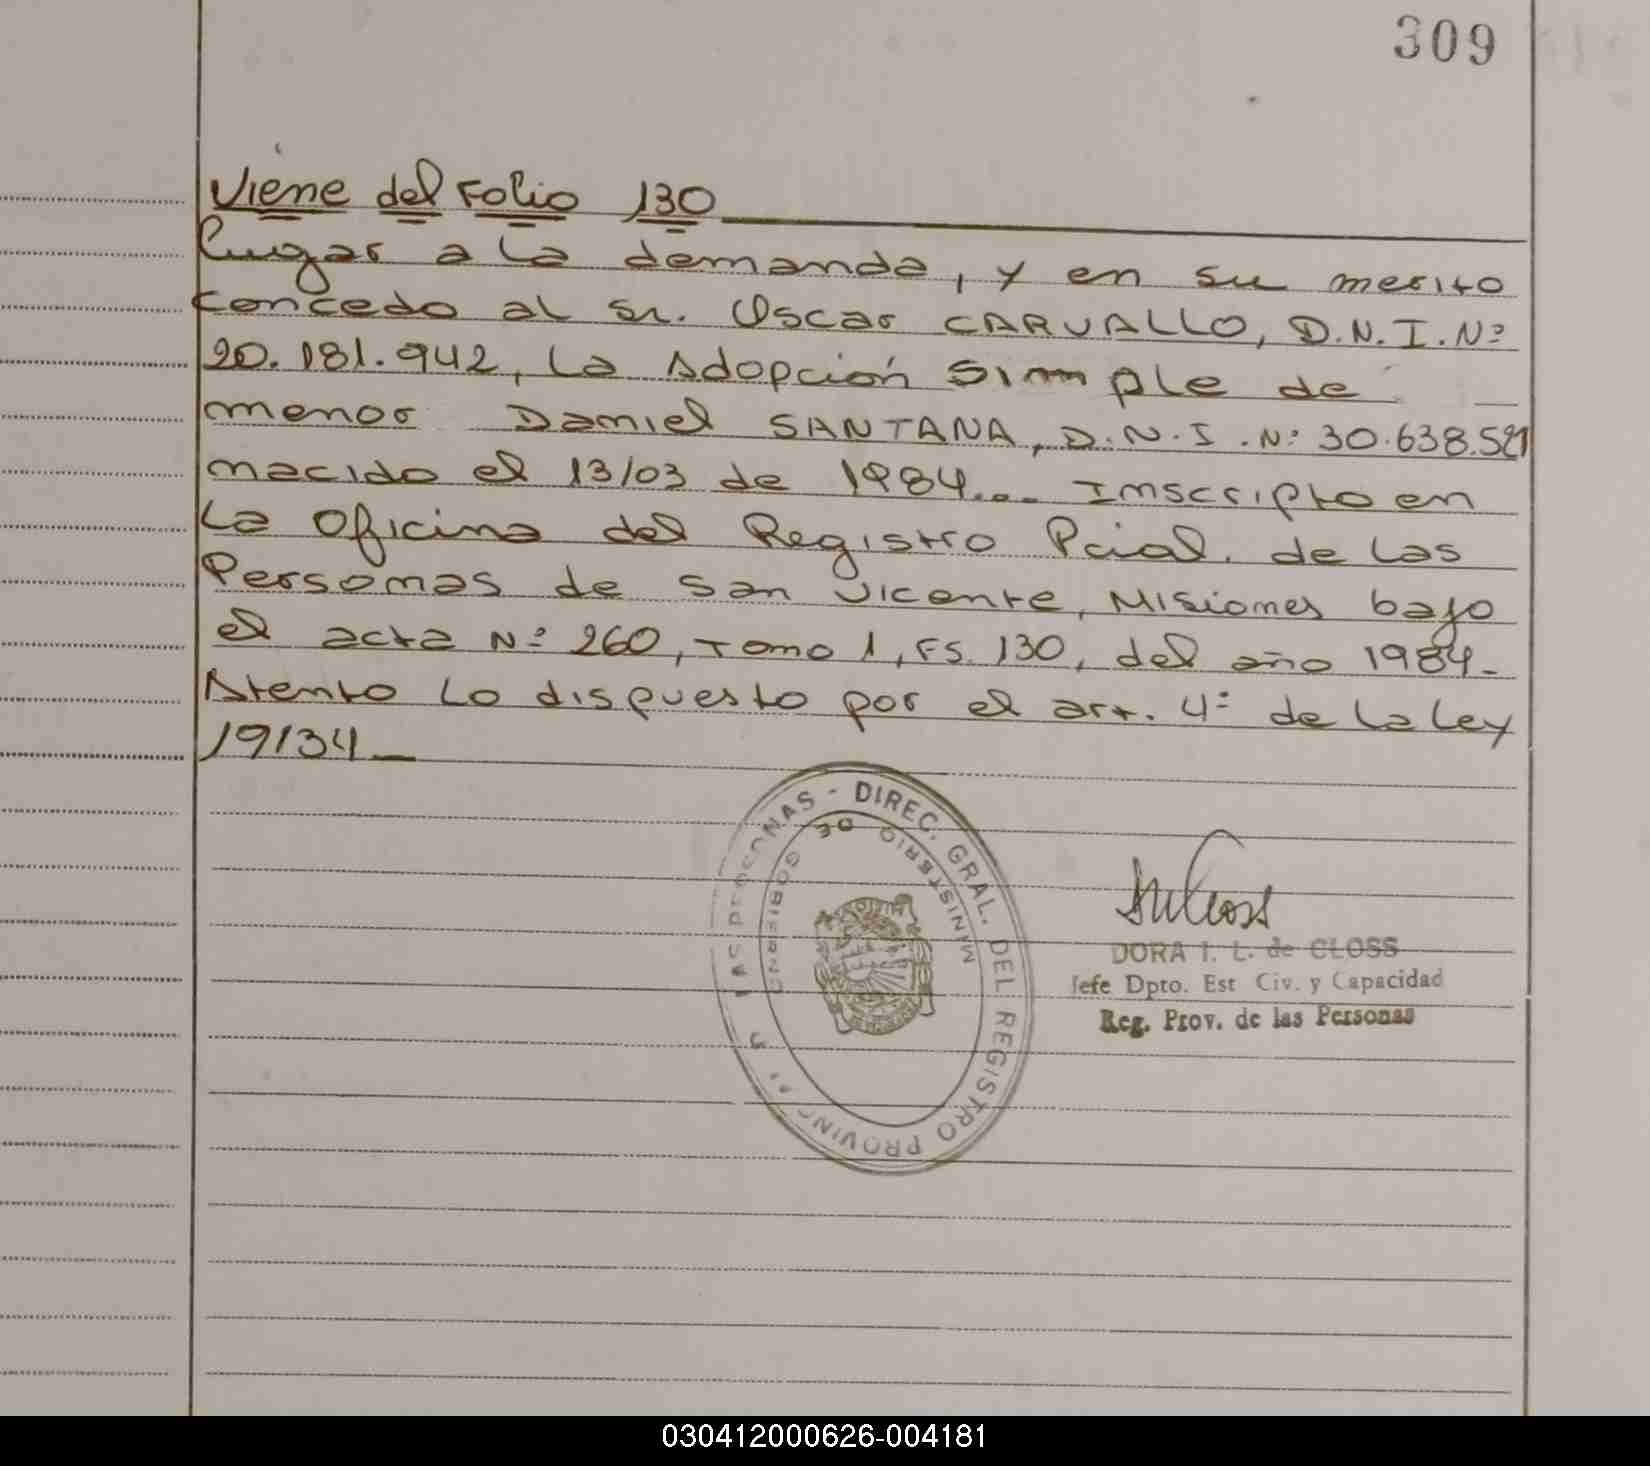 309
Viene del Folio 130
lugar a la demanda, y en su merito
concedo al Sr. Oscar CARVALLO, D.N.I.Nº
20.181.942, la Adopción Simple de
menor Daniel SANTANA, D.N.I.Nº 30.638.521
nacido el 13/03 de 1984... Inscripto en
la Oficina del Registro Pcial. de las
Personas de San Vicente, Misiones bajo
el acta Nº 260, Tomo 1, FS. 130, del año 1984-
Atento lo dispuesto por el art. 4º de la Ley
19134
DIREC. GRAL. DEL REGISTRO PROVINCIAL DE LAS PERSONAS -
MINISTERIO DE GOBIERNO
DORA I. L. de CLOSS
Jefe Dpto. Est Civ. y Capacidad
Reg. Prov. de las Personas
030412000626-004181